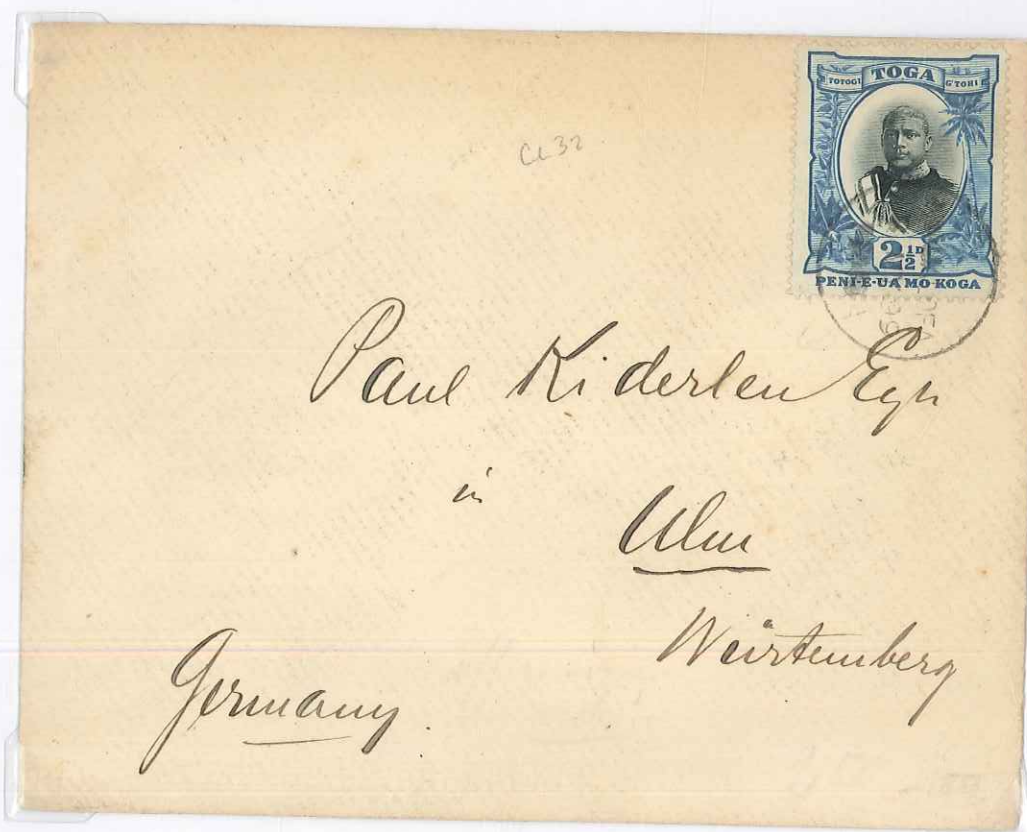 TOTOGI TOGA G'TOHI
2½D
PENI-E-UA MO KOGA
Paul Kiderlen Eqr
in
Ulm
Würtemberg
Germany.